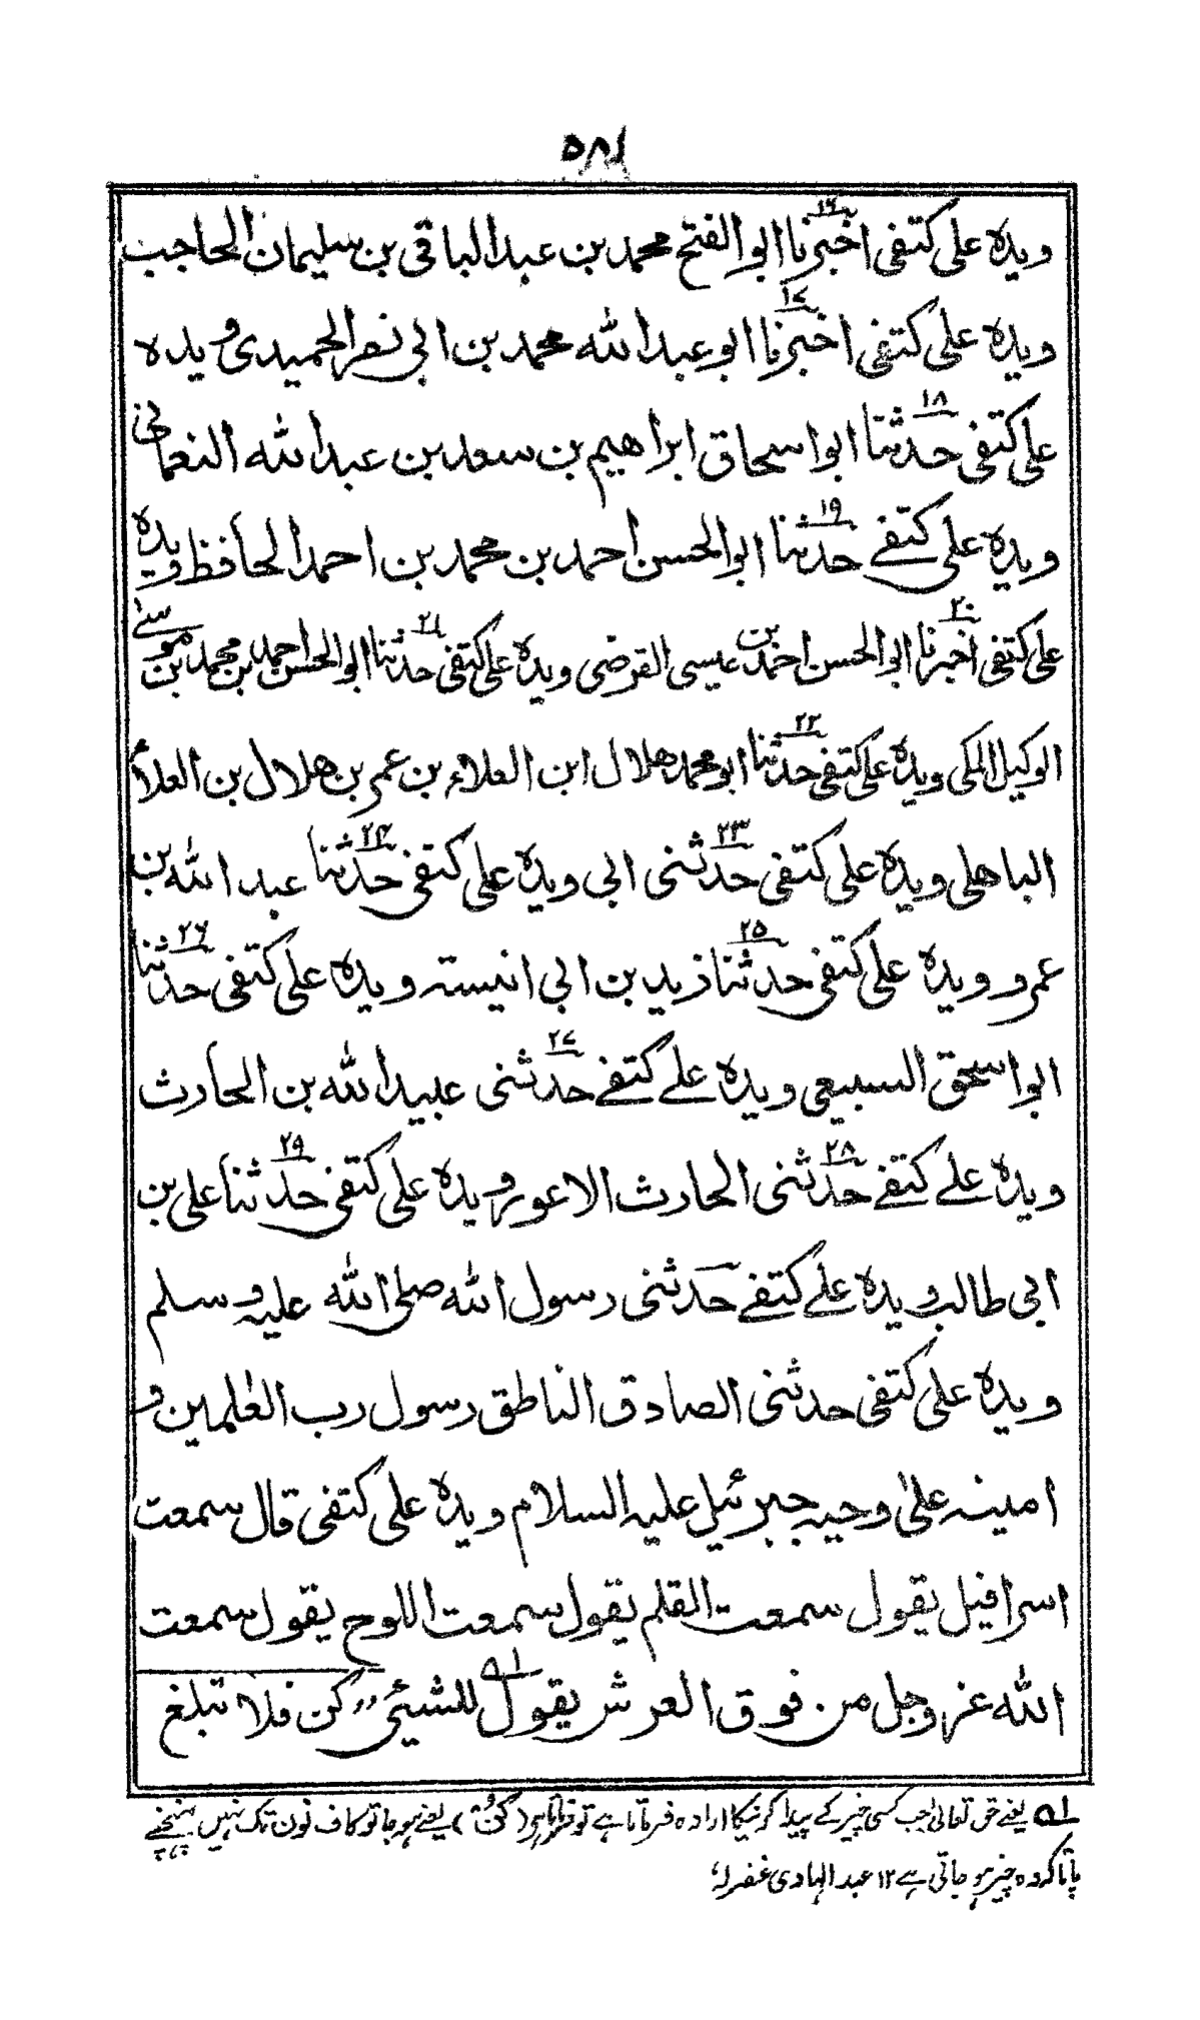 ۵۸۱
ويده على كتفى اخبرنا١٦ ابو الفتح محمد بن عبد الباقى بن سليمان الحاجب
ويده على كتفى اخبرنا١٧ ابو عبد الله محمد بن ابي نصر الحميدى ويده
على كتفى حدثنا١٨ ابو اسحاق ابراهيم بن سعد بن عبد الله النعمانى
ويده على كتفے حدثنا١٩ ابو الحسن احمد بن محمد بن احمد الحافظ ويده
على كتفى اخبرنا٢٠ ابو الحسن احمد بن عيسى القرضى ويده على كتفى حدثنا٢١ ابو الحسن احمد بن محمد بن موسےٰ
الوكيل المكى ويده على كتفى حدثنا٢٢ ابو محمد هلال ابن العلاء بن عمر بن هلال بن العلاء
الباهلى ويده على كتفى حدثنى٢٣ ابى ويده على كتفى حدثنا٢٤ عبد الله بن
عمرو ويده على كتفى حدثنا٢٥ زيد بن ابى انيسته ويده على كتفى حدثنا٢٦
ابو اسحق السبيعى ويده علے كتفے حدثنى٢٧ عبيد الله بن الحارث
ويده علے كتفے حدثنى٢٨ الحارث الاعور ويده على كتفى حدثنا٢٩ على بن
ابى طالب ويده علے كتفے حدثنى رسول الله صلى الله عليه وسلم
ويده على كتفى حدثنى الصادق الناطق رسول رب العٰلمين و
امينه علىٰ وحيه جبرئيل عليه السلام ويده على كتفى قال سمعت
اسرافيل يقول سمعت القلم يقول سمعت اللوح يقول سمعت
الله عز وجل من فوق العرش يقول للشيئ١ "كن فلا تبلغ
١؎ یعنے حق تعالیٰ جب کسی چیز کے پیدا کرنیکا ارادہ فرماتا ہے تو فرماتا ہے (کُنْ) یعنے ہو جا تو کاف نون تک نہیں پہنچنے
پاتا کہ وہ چیز ہو جاتی ہے ۱۲ عبد الہادی غفرلہٗ